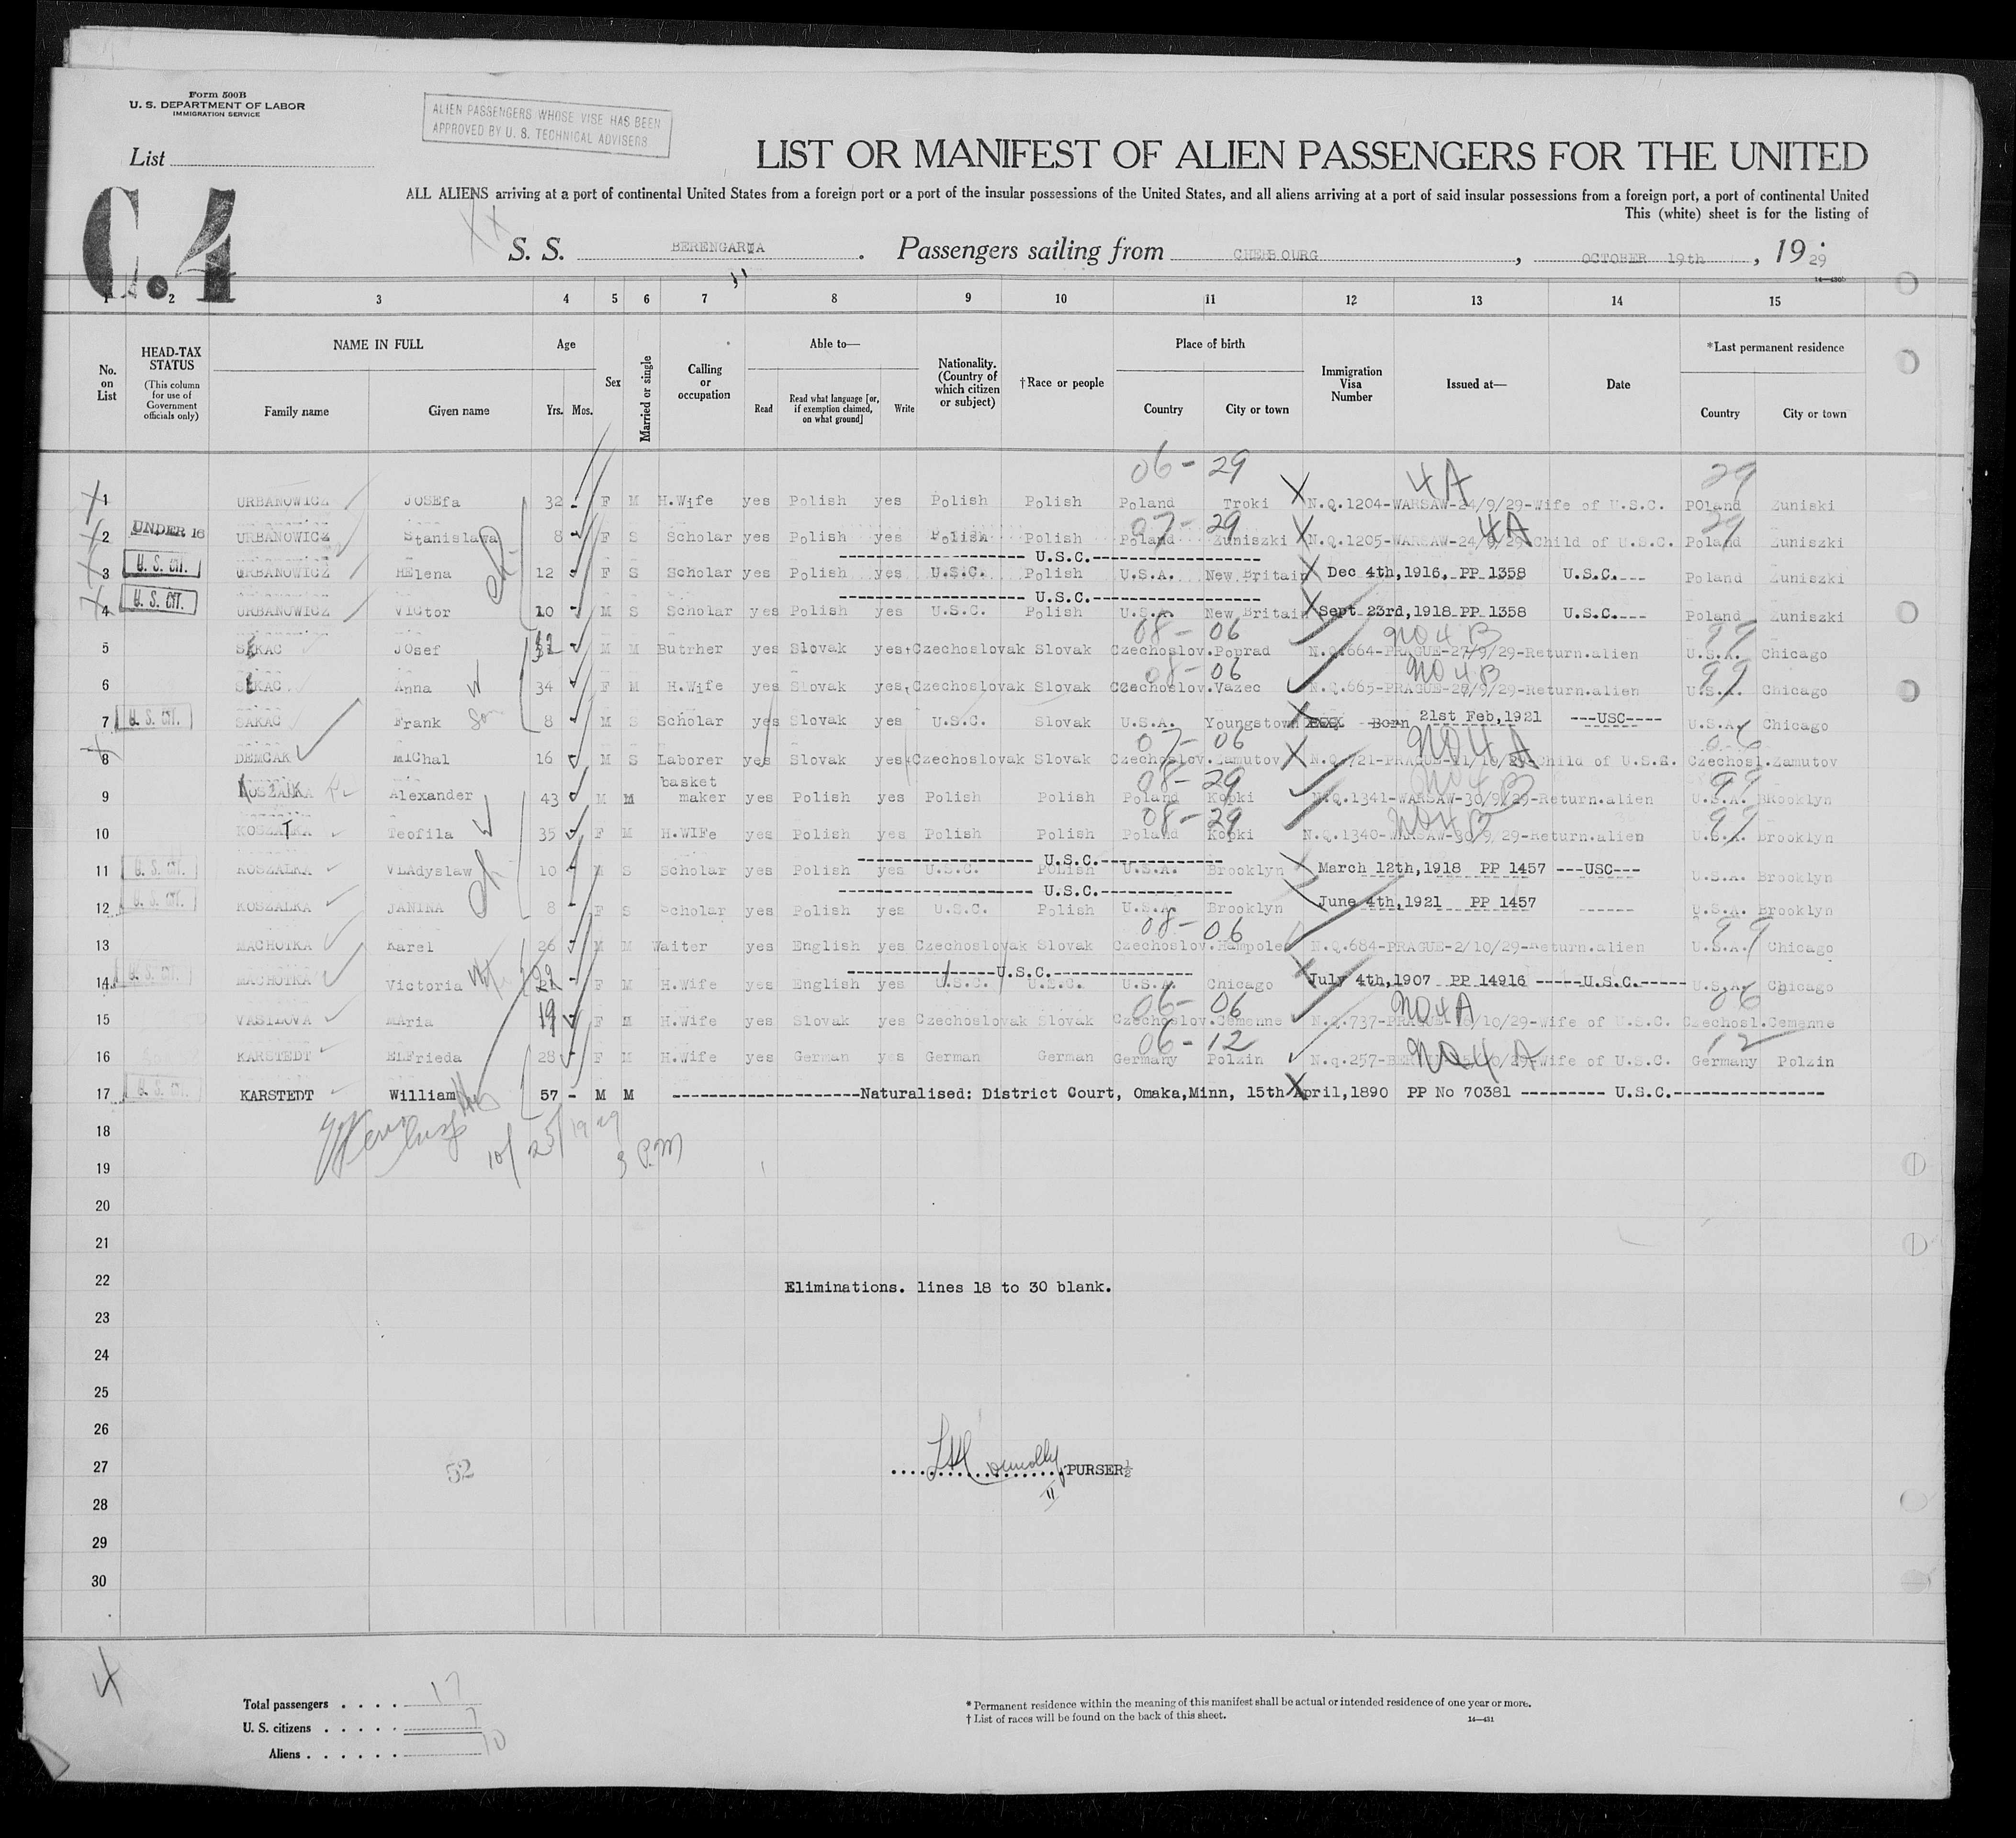 Form 500B
U. S. DEPARTMENT OF LABOR
IMMIGRATION SERVICE
ALIEN PASSENGERS WHOSE VISE HAS BEEN
APPROVED BY U. S. TECHNICAL ADVISERS
List
C.4
LIST OR MANIFEST OF ALIEN PASSENGERS FOR THE UNITED
ALL ALIENS arriving at a port of continental United States from a foreign port or a port of the insular possessions of the United States, and all aliens arriving at a port of said insular possessions from a foreign port, a port of continental United
This (white) sheet is for the listing of
S. S. BERENGARIA. Passengers sailing from CHERBOURG, OCTOBER 19th, 1929
14—430b
1 2 3 4 5 6 7 8 9 10 11 12 13 14 15
No. on List
HEAD-TAX STATUS
(This column for use of Government officials only)
NAME IN FULL
Family name Given name
Age
Yrs. Mos.
Sex
Married or single
Calling or occupation
Able to—
Read Read what language [or, if exemption claimed, on what ground] Write
Nationality. (Country of which citizen or subject)
†Race or people
Place of birth
Country City or town
Immigration Visa Number
Issued at—
Date
*Last permanent residence
Country City or town
06 - 29 4A 29
1 URBANOWICZ JOSEfa 32 F M H.Wife yes Polish yes Polish Polish Poland Troki N.Q.1204-WARSAW-24/9/29-Wife of U.S.C. POland Zuniski
07 - 29 4A 29
2 UNDER 16 URBANOWICZ Stanislawa 8 F S Scholar yes Polish yes Polish Polish Poland Zuniszki N.Q.1205-WARSAW-24/9/29-Child of U.S.C. Poland Zuniszki
U.S.C.
3 U. S. CIT. URBANOWICZ HElena 12 F S Scholar yes Polish yes U.S.C. Polish U.S.A. New Britain Dec 4th,1916, PP 1358 U.S.C.--- Poland Zuniszki
U.S.C.
4 U. S. CIT. URBANOWICZ VICtor 10 M S Scholar yes Polish yes U.S.C. Polish U.S.A. New Britain Sept 23rd,1918 PP 1358 U.S.C.--- Poland Zuniszki
08 - 06 NO 4 B 99
5 SAKAC JOsef M M Butrher yes Slovak yes Czechoslovak Slovak Czechoslov.Poprad N.Q.664-PRAGUE-27/9/29-Return.alien U.S.A. Chicago
08 - 06 NO 4 B 99
6 SAKAC Anna W 34 F M H.Wife yes Slovak yes Czechoslovak Slovak Czechoslov.Vazec N.Q.665-PRAGUE-28/9/29-Return.alien U.S.A. Chicago
7 U. S. CIT. SAKAC Frank Son 8 M S Scholar yes Slovak yes U.S.C. Slovak U.S.A. Youngstown Born 21st Feb,1921 ---USC---- U.S.A. Chicago
07 - 06 NO 4 A 06
8 DEMCAK MIChal 16 M S Laborer yes Slovak yes Czechoslovak Slovak Czechoslov.Zamutov N.Q.721-PRAGUE-11/10/29-Child of U.S.C. Czechosl.Zamutov
08 - 29 NO 4 B 99
9 KOSZALKA Alexander 43 M M basket maker yes Polish yes Polish Polish Poland Kopki N.Q.1341-WARSAW-30/9/29-Return.alien U.S.A. BRooklyn
08 - 29 NO 4 B 99
10 KOSZALKA Teofila W 35 F M H.WIFe yes Polish yes Polish Polish Poland Kopki N.Q.1340-WARSAW-30/9/29-Return.alien U.S.A. Brooklyn
U.S.C.
11 U. S. CIT. KOSZALKA VLAdyslaw 10 M S Scholar yes Polish yes U.S.C. POLish U.S.A. Brooklyn March 12th,1918 PP 1457 ---USC--- U.S.A. Brooklyn
U.S.C.
12 U. S. CIT. KOSZALKA JANINA 8 F S Scholar yes Polish yes U.S.C. Polish U.S.A. Brooklyn June 4th,1921 PP 1457 ------ U.S.A. Brooklyn
08 - 06 99
13 MACHOTKA Karel 26 M M Waiter yes English yes Czechoslovak Slovak Czechoslov.Hampole N.Q.684-PRAGUE-2/10/29-Return.alien U.S.A. Chicago
U.S.C.
14 U. S. CIT. MACHOTKA Victoria Wife 22 F M H.Wife yes English yes U.S.C. U.S.C. U.S.A. Chicago July 4th,1907 PP 14916 -----U.S.C.----- U.S.A. Chicago
06 - 06 NO 4 A 06
15 VASILOVA MAria 19 F M H.Wife yes Slovak yes Czechoslovak Slovak Czechoslov.Cemenne N.Q.737-PRAGUE-16/10/29-Wife of U.S.C. Czechosl.Cemenne
06 - 12 NO 4 A 12
16 KARSTEDT ELFrieda 28 F M H.Wife yes German yes German German Germany Polzin N.q.257-Wife of U.S.C. Germany Polzin
17 U. S. CIT. KARSTEDT William Hus 57 - M M --------------------Naturalised: District Court, Omaka,Minn, 15th April,1890 PP No 70381 --------- U.S.C.----------------
18
10/25/1929
19
3 P.M
20
21
22 Eliminations. lines 18 to 30 blank.
23
24
25
26
27 52 PURSER
28
29
30
4
Total passengers . . . . 17
U. S. citizens . . . . . 7
Aliens . . . . . . 10
* Permanent residence within the meaning of this manifest shall be actual or intended residence of one year or more.
† List of races will be found on the back of this sheet.
14—431